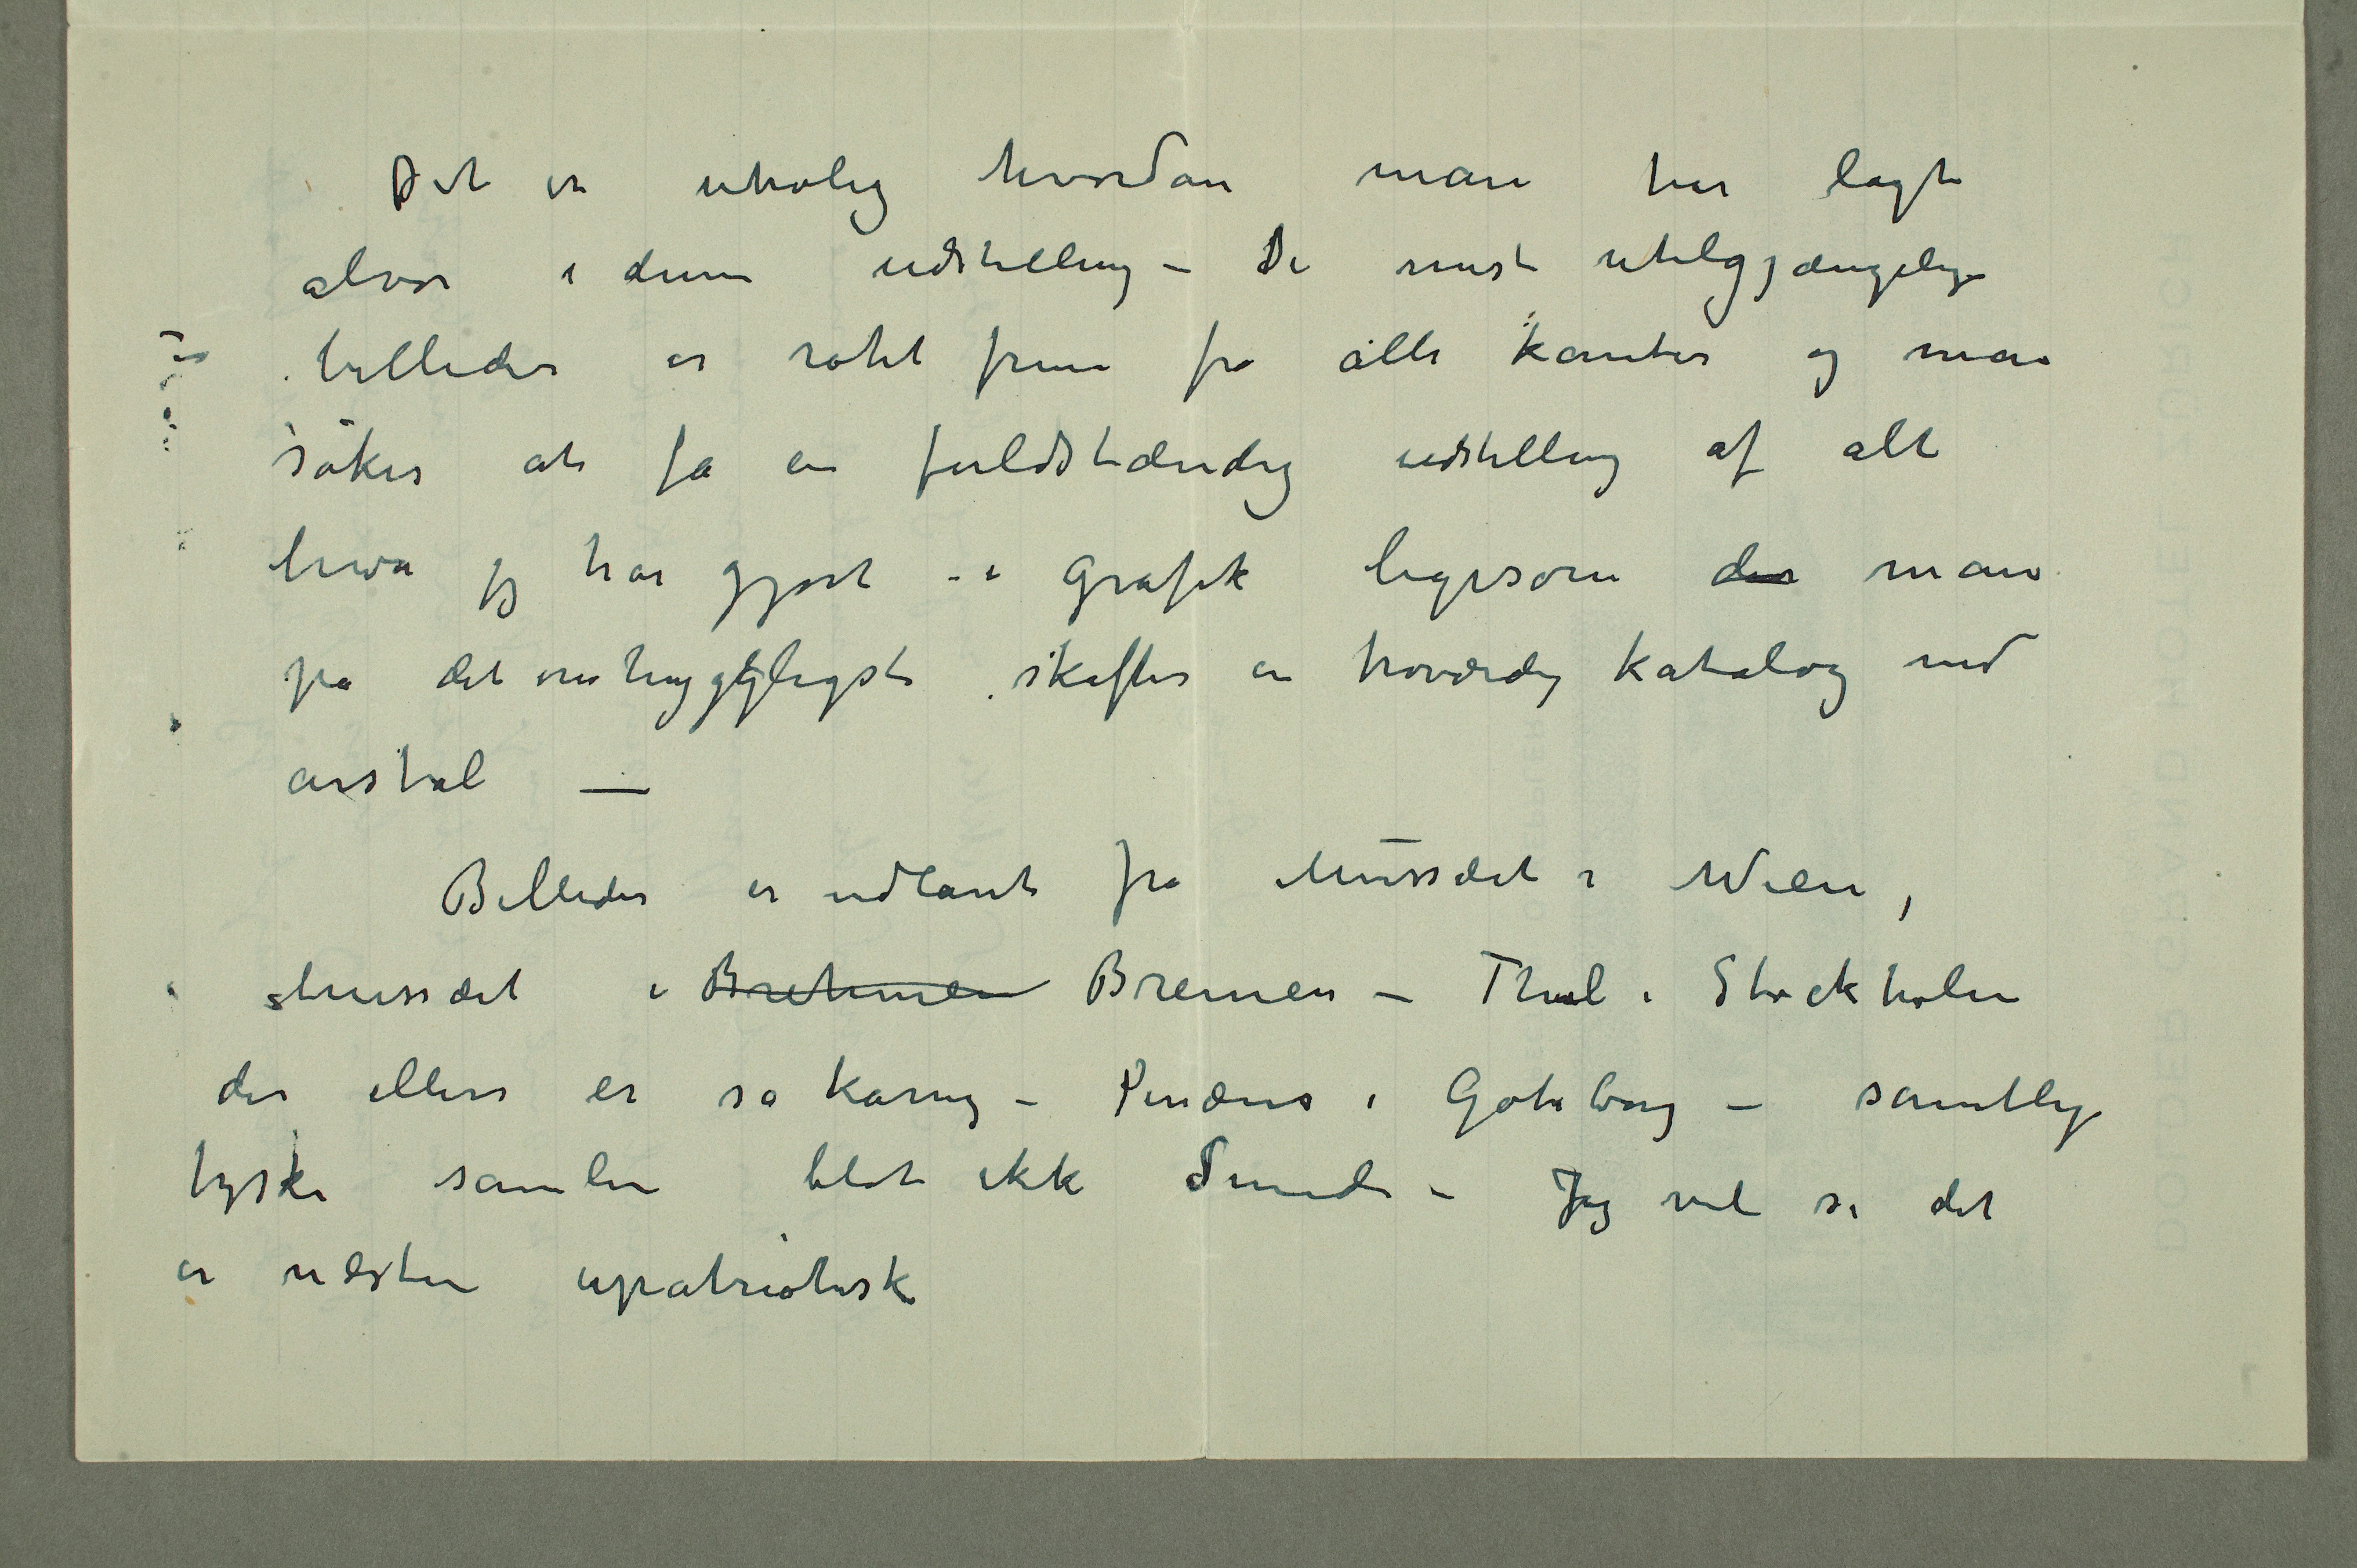 Det er utrolig hvordan man har lagt
alvor i denne udstilling – De mest utilgjængelige
billeder er rotet frem fra alle kanter og man
søker at få en fuldstændig udstilling af alt
hva jeg har gjort – i Grafik ligesom der man
på det omhyggeligste skaffer en troværdig katalog med
årstal —
Billeder er udlånt fra Musæet i Wien,
Musæet i Brehmen Bremen – Thiel i Stockholm
der ellers er så karrig – i Göteborg – samtlige
tyske samlere blot ikke – Jeg vil si det
er næsten upatriotisk